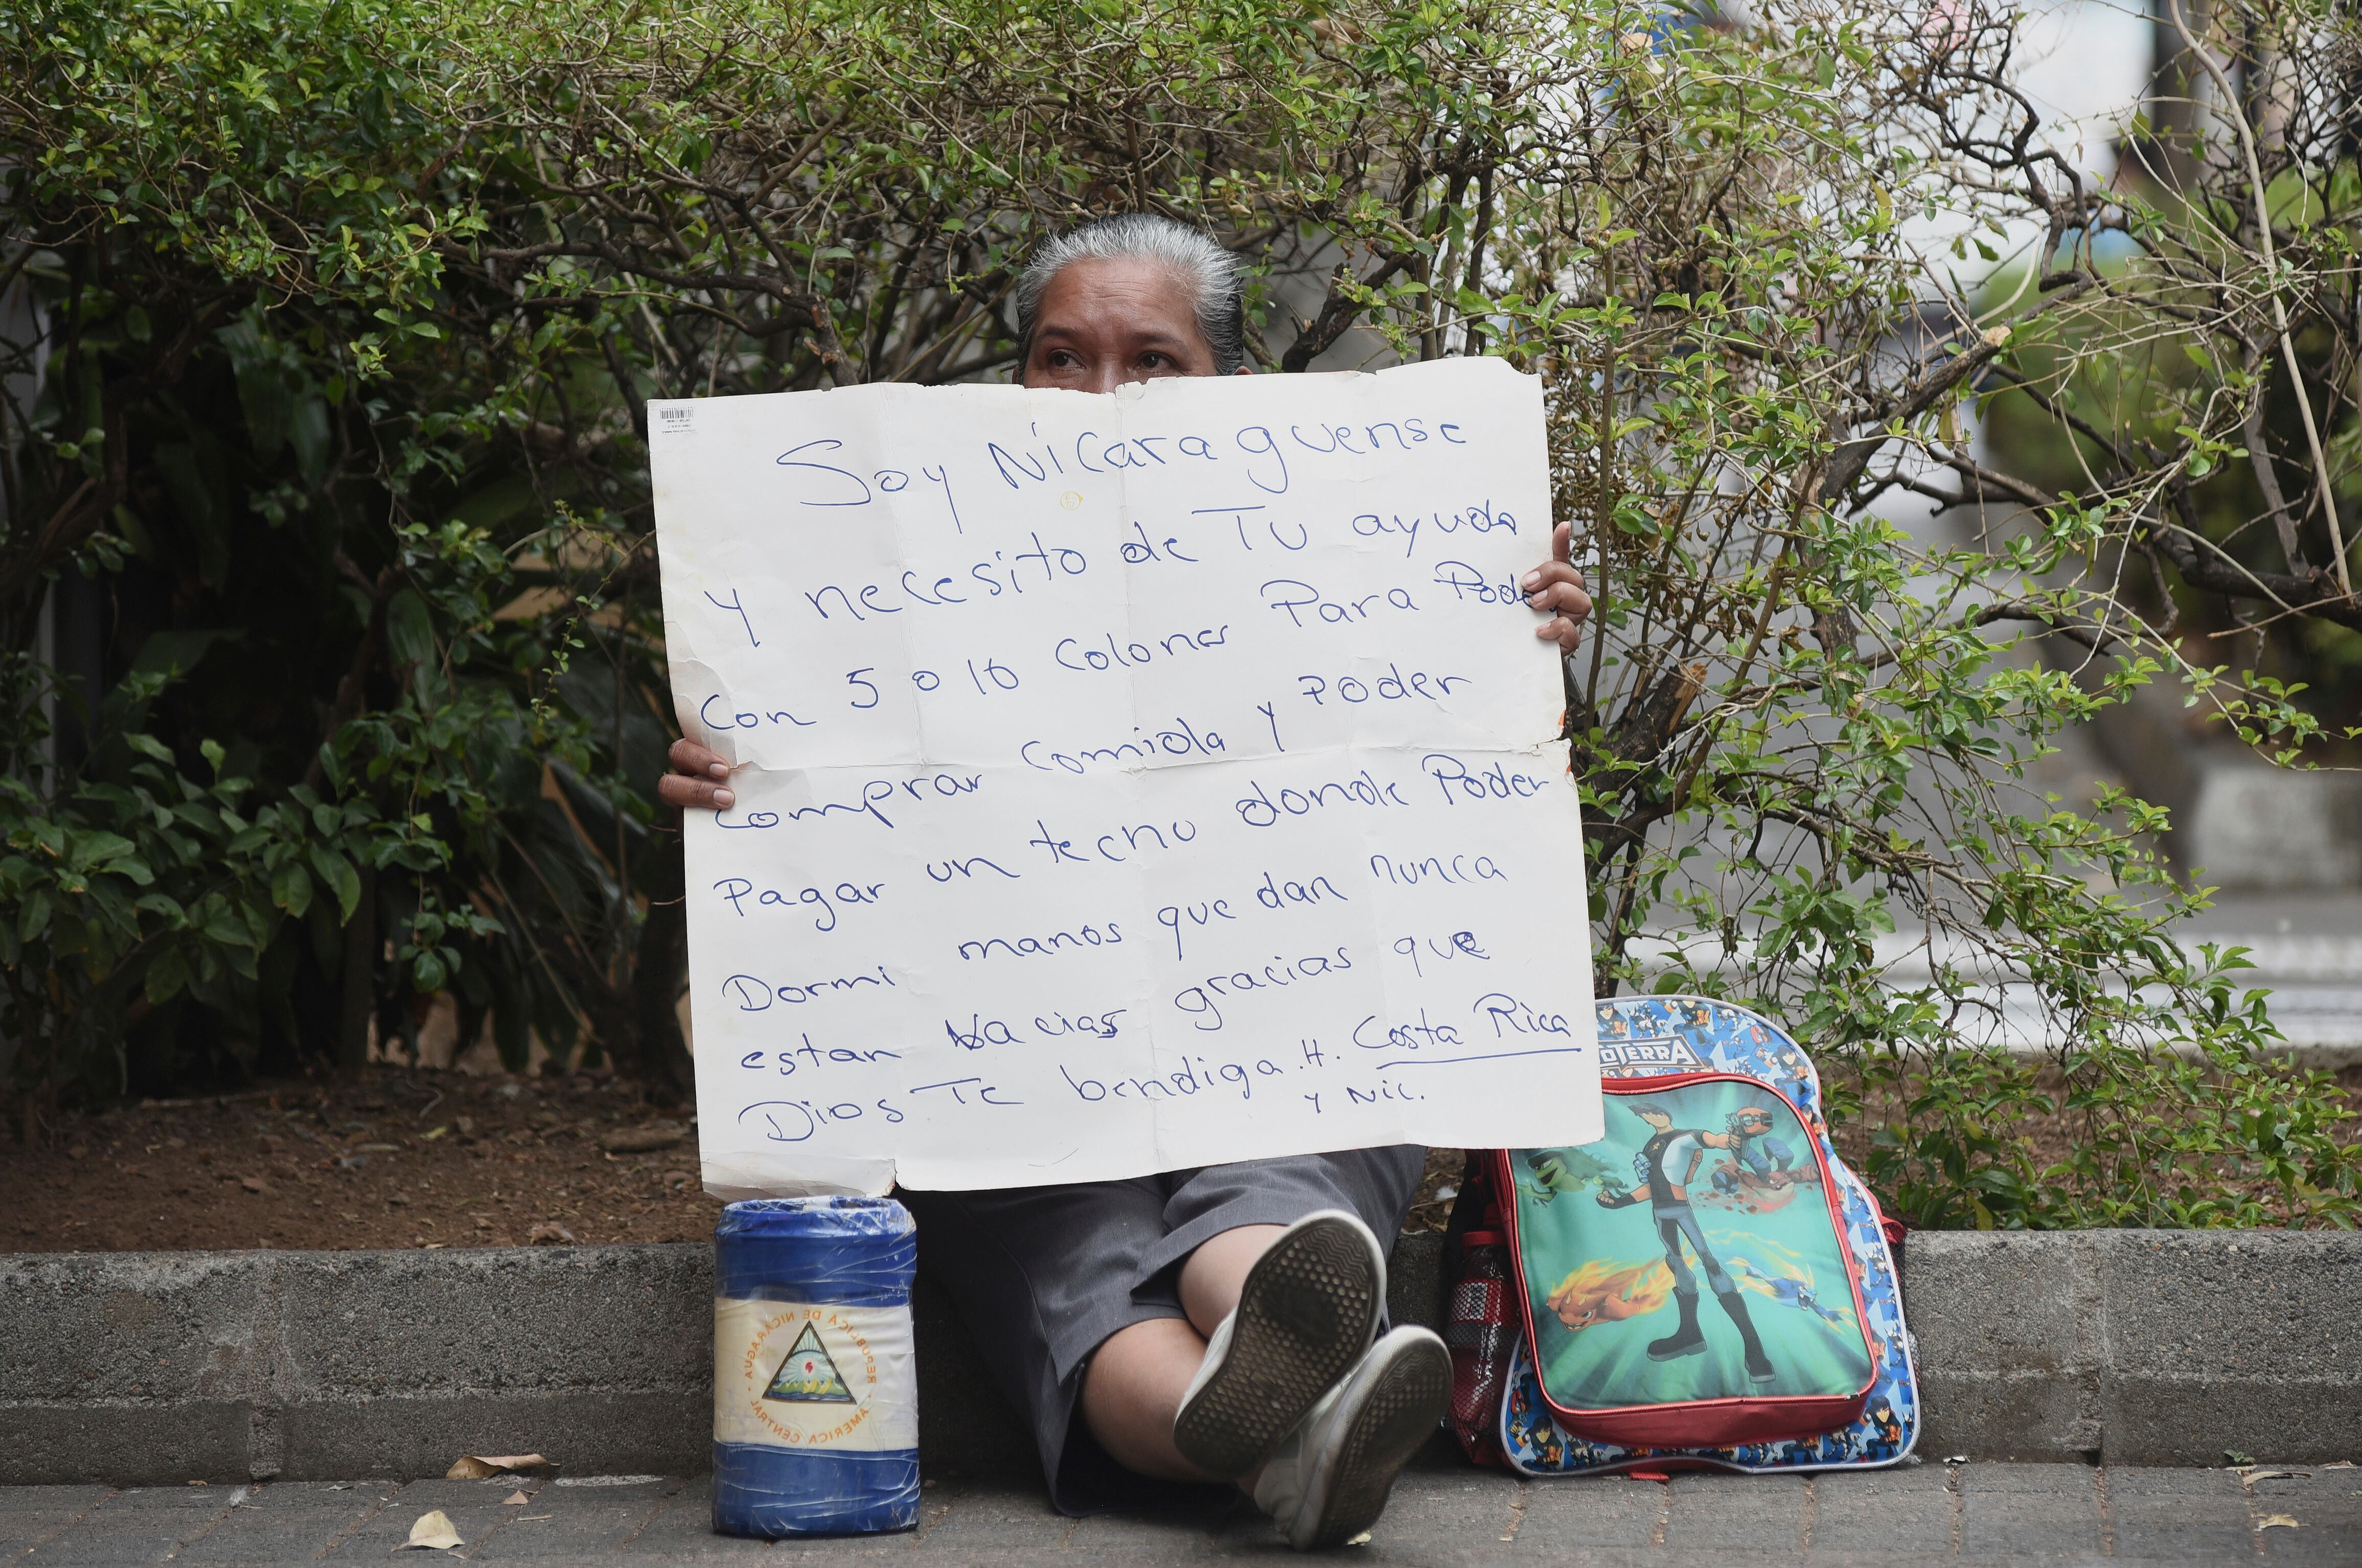 Soy Nicaraguense
y necesito de Tu ayuda
con 5 o 10 Colones Para Poder
comprar comida y Poder
Pagar un techo donde Poder
Dormi manos que dan nunca
estan vacias gracias que
Dios Te bendiga. H. Costa Rica
y Nic.
REPUBLICA DE NICARAGUA
AMERICA CENTRAL
OTERRA